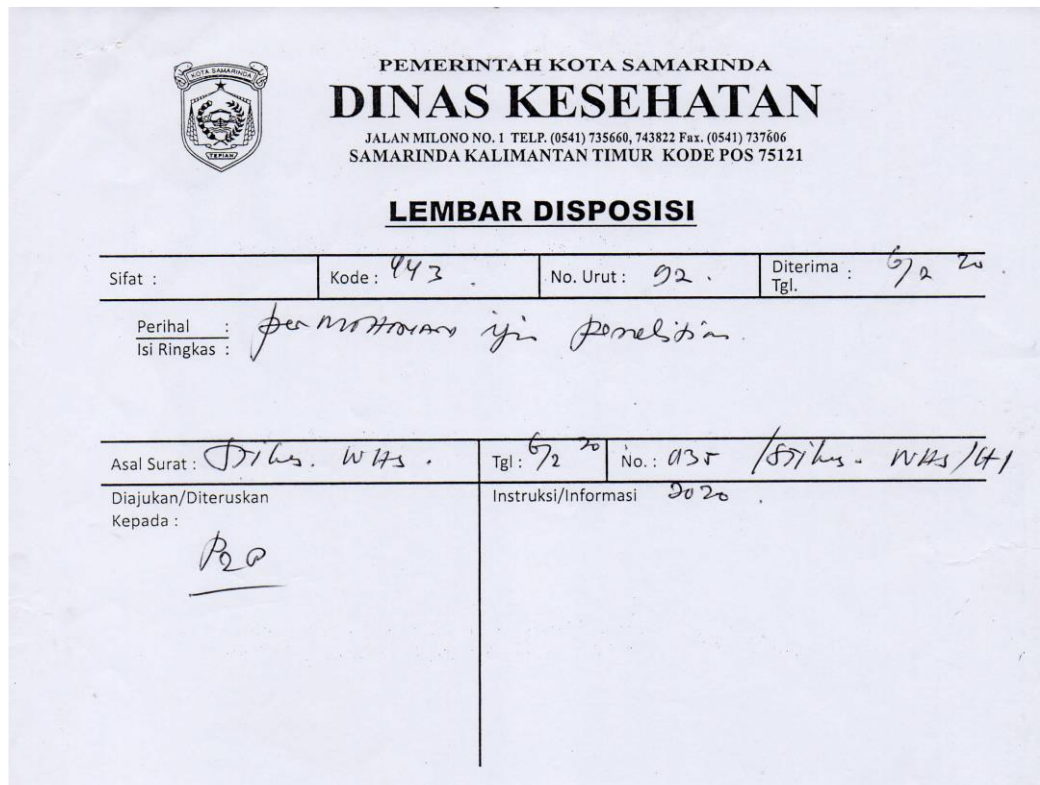 KOTA SAMARINDA
TEPIAN
PEMERINTAH KOTA SAMARINDA
DINAS KESEHATAN
JALAN MILONO NO. 1 TELP. (0541) 735660, 743822 Fax. (0541) 737606
SAMARINDA KALIMANTAN TIMUR KODE POS 75121
LEMBAR DISPOSISI
Sifat : Kode : 443 . No. Urut : 92 . Diterima Tgl. : 6/2 20 .
Perihal : permohonan ijin penelitian.
Isi Ringkas :
Asal Surat : Stikes. WHS . Tgl : 6/2 20 No. : 035 /Stikes. WHS/
Diajukan/Diteruskan Kepada : Instruksi/Informasi 2020 .
P2P